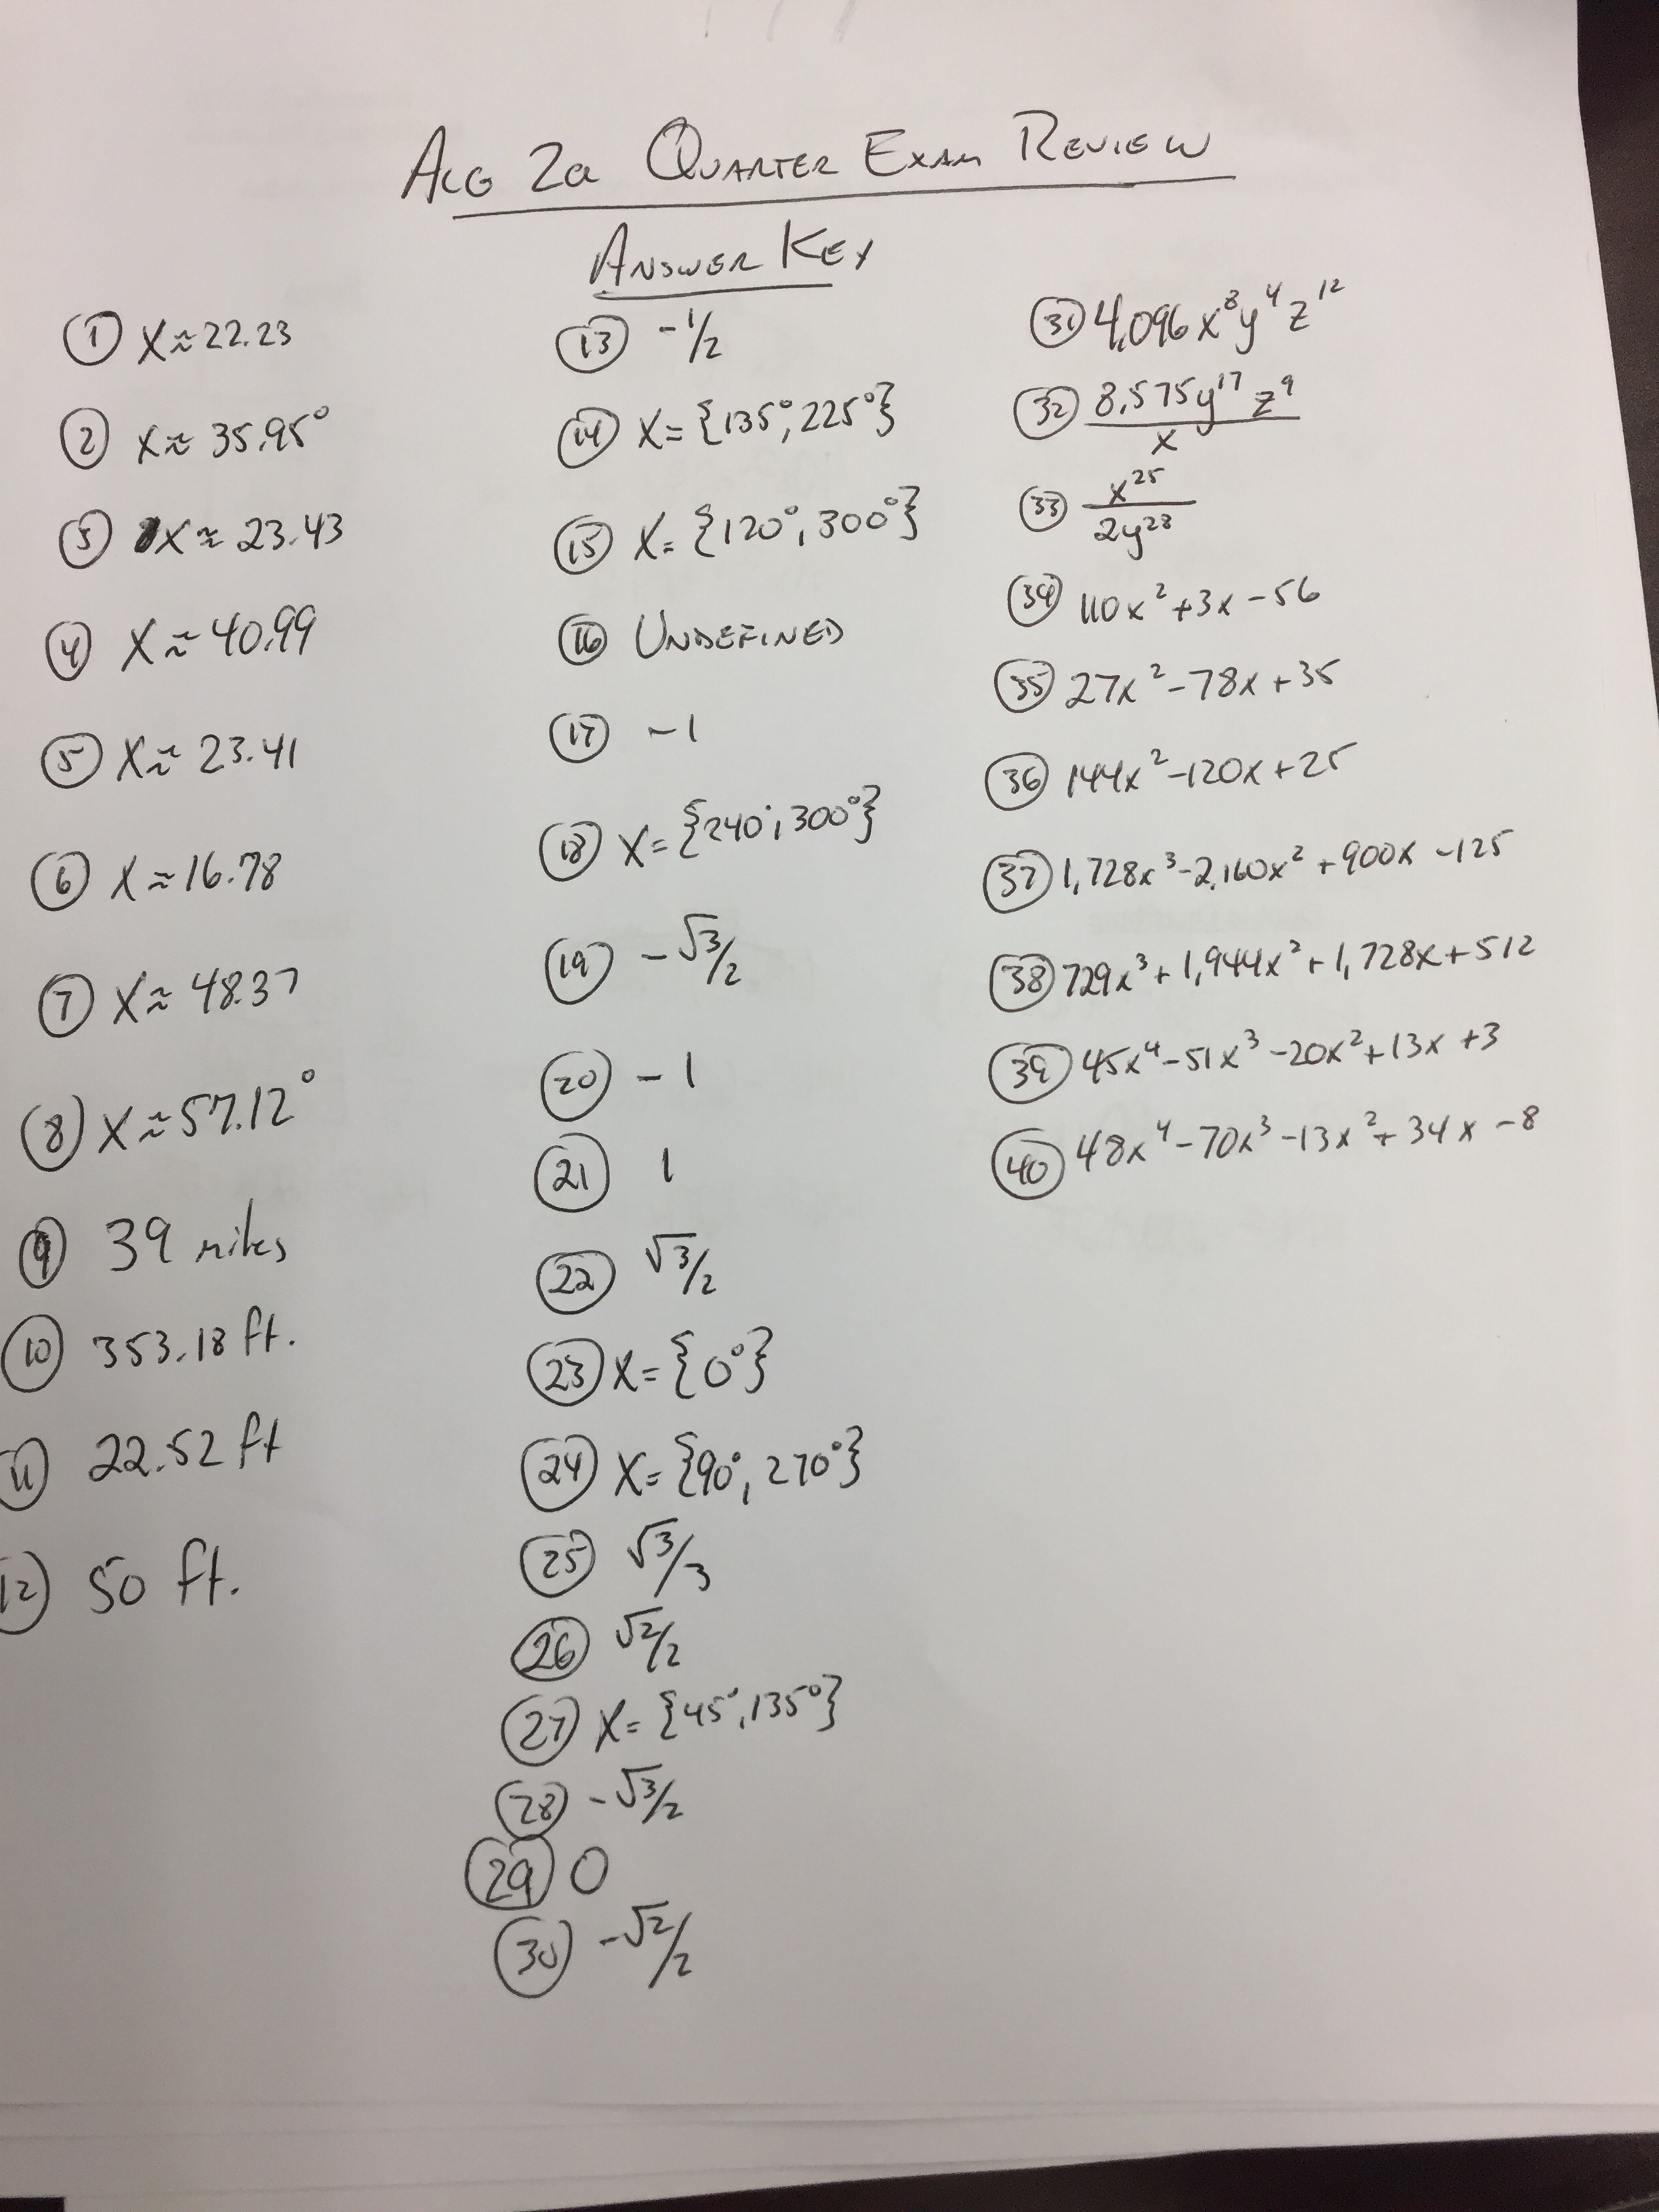 ALG 2a QUARTER EXAM REVIEW
ANSWER KEY
① X ≈ 22.23
② X ≈ 35.95°
③ X ≈ 23.43
④ X ≈ 40.99
⑤ X ≈ 23.41
⑥ X ≈ 16.78
⑦ X ≈ 48.37
⑧ X ≈ 57.12°
⑨ 39 miles
⑩ 353.18 ft.
⑪ 22.52 ft
⑫ 50 ft.
⑬ -1/2
⑭ X = {135°, 225°}
⑮ X = {120°, 300°}
⑯ UNDEFINED
⑰ -1
⑱ X = {240°, 300°}
⑲ -√3/2
⑳ -1
㉑ 1
㉒ √3/2
㉓ X = {0°}
㉔ X = {90°, 270°}
㉕ √3/3
㉖ √2/2
㉗ X = {45°, 135°}
㉘ -√3/2
㉙ 0
㉚ -√2/2
㉛ 4,096x⁸y⁴z¹²
㉜ 8,575y¹⁷z⁹/x
㉝ x²⁵/2y²³
㉞ 110x² + 3x - 56
㉟ 27x² - 78x + 35
㊱ 144x² - 120x + 25
㊲ 1,728x³ - 2,160x² + 900x - 125
㊳ 729x³ + 1,944x² + 1,728x + 512
㊴ 45x⁴ - 51x³ - 20x² + 13x + 3
㊵ 48x⁴ - 70x³ - 13x² + 34x - 8